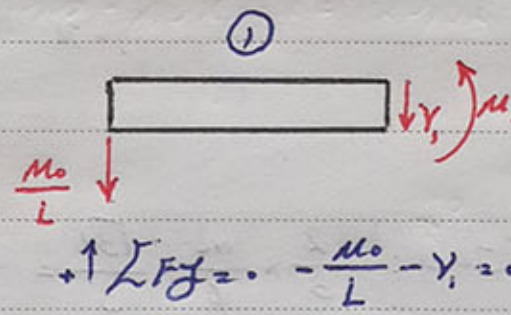 1
V₁ M
M₀/L
+↑ ΣFy = 0 - M₀/L - V₁ = 0